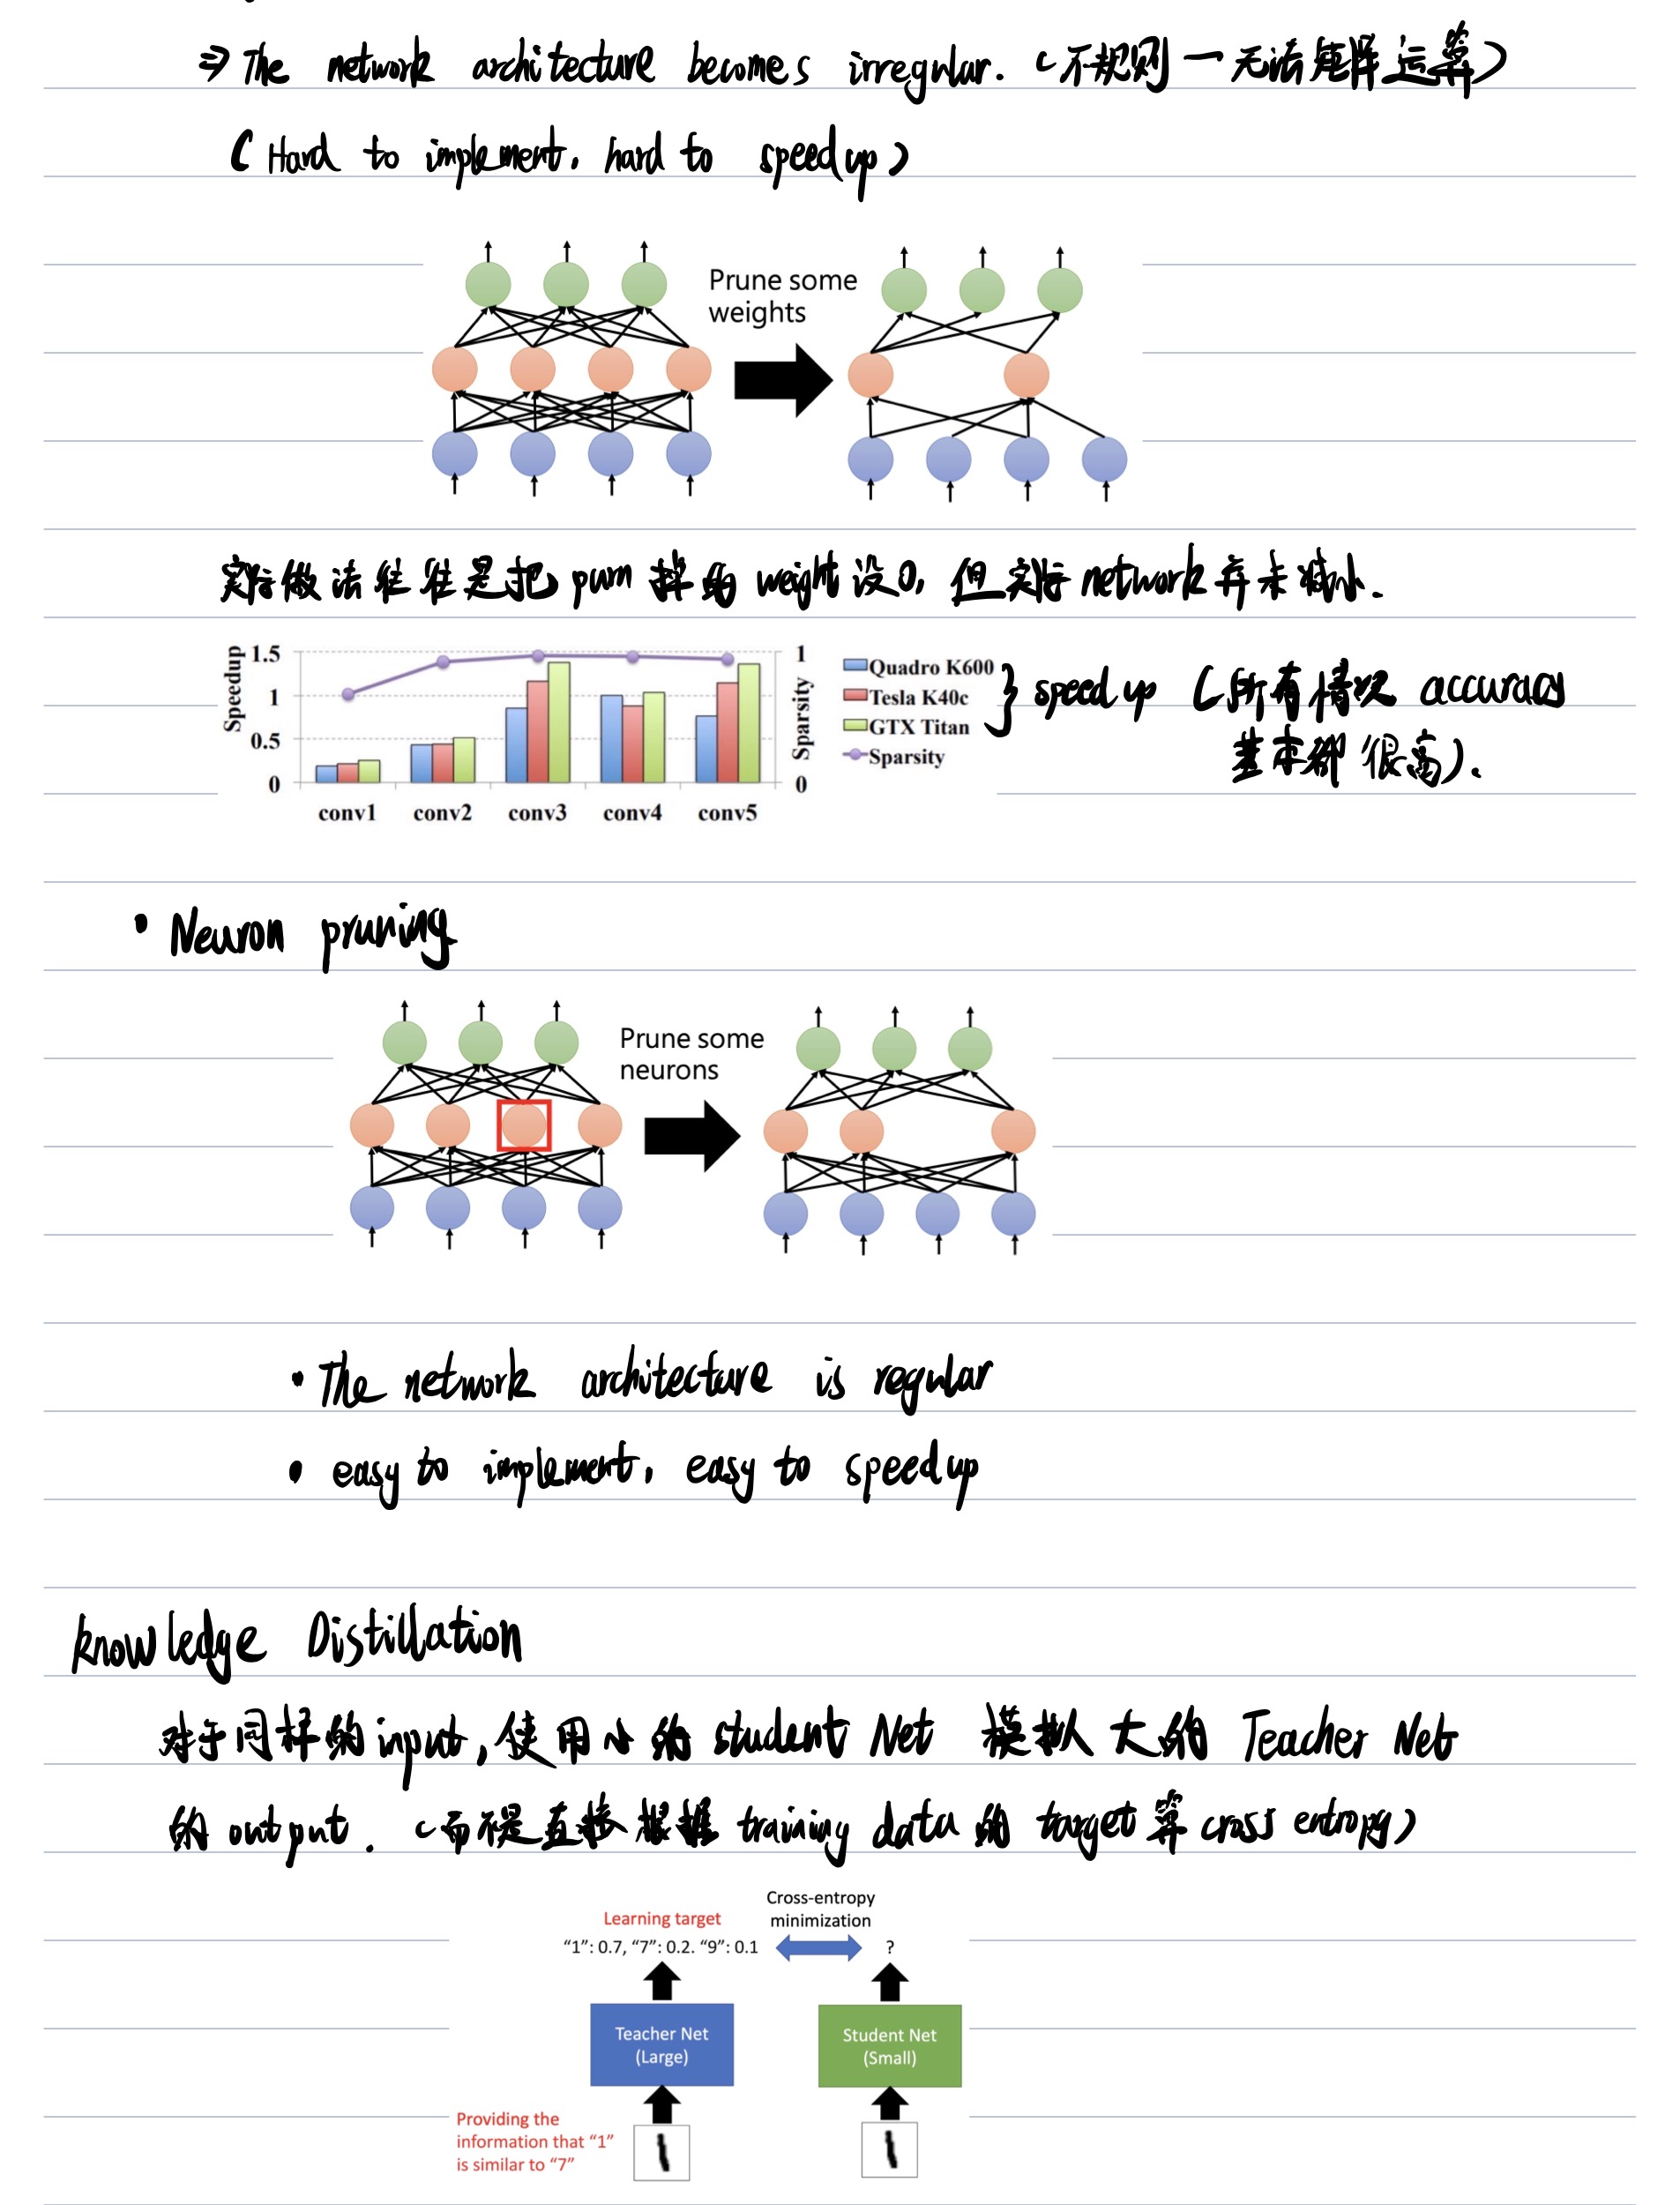 ⇒ The network architecture becomes irregular. (不规则一无法矩阵运算)
(Hard to implement, hard to speedup)
Prune some
weights
实际做法往往是把 purn 掉的 weight 设0, 但实际 network 并未减小.
Speedup
1.5
1
0.5
0
1
0
Sparsity
conv1 conv2 conv3 conv4 conv5
Quadro K600
Tesla K40c
GTX Titan
Sparsity
} speed up (所有情况 accuracy
基本都很高).
• Neuron pruning
Prune some
neurons
• The network architecture is regular
• easy to implement, easy to speedup
knowledge Distillation
对于同样的 input, 使用小的 student Net 模拟大的 Teacher Net
的 output. (而不是直接根据 training data 的 target 算 cross entropy)
Cross-entropy
minimization
Learning target
“1”: 0.7, “7”: 0.2. “9”: 0.1
?
Teacher Net
(Large)
Student Net
(Small)
Providing the
information that “1”
is similar to “7”